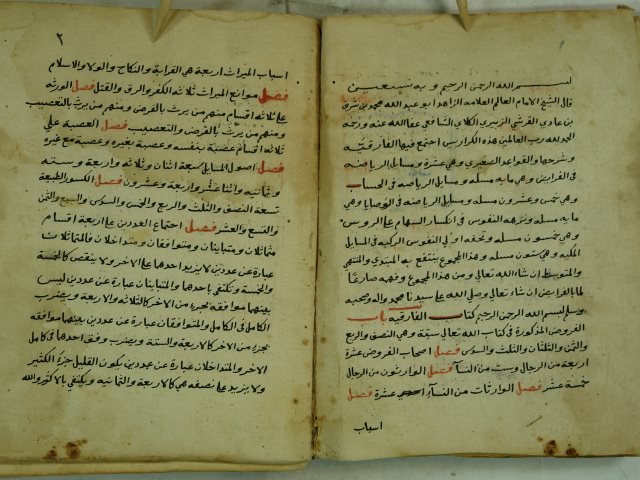 بسم الله الرحمن الرحيم وبه نستعين
قال الشيخ الامام العالم العلامه الزاهد ابو عبد الله محمد بن شرف
بن عادي القرشي الزبيري الكلاي الشافعي عفا الله عنه ورحمه
الحمد لله رب العالمين هذه الكراريس اجتمع فيها الفارقيه
وشرحها والقواعد الصغيري وهي عشرة ومسايل الرياضه
في الفرايض وهي مايه مسله ومسايل الرياضه في الحساب
وهي خمس وعشرون مسله ومسايل الرياضه في الوصايا وهي
مايه مسله ونزهه النفوس في انكسار السهام علي الروس
وهي خمسون مسله وتحفه اولي النفوس الزكيه في المسايل
المكيه وهي ستون مسله وهذا المجموع ينتفع به المبتدي والمنتهي
والمتوسط ان شاء الله تعالي ومن هذا المجموع وفهمه صار عا
لما بالفرايض ان شاء تعالي وصلي الله علي سيدنا محمد واله وصحبه
وسلم بسم الله الرحمن الرحيم كتاب الفارقيه باب
الفروض المذكورة في كتاب الله تعالي ستة وهي النصف والربع
والثمن والثلثان والثلث والسدس فصل اصحاب الفروض عشرة
اربعة من الرجال وست من النسآ فصل الوارثون من الرجال
خمسة عشر فصل الوارثات من النسآء عشرة فصل
اسباب
٢
اسباب الميراث اربعة هي القرابة والنكاح والولا والاسلام
فصل موانع الميراث ثلاثه الكفر والرق والقتل فصل الورثه
علي ثلاثه اقسام منهم من يرث بالفرض ومنهم من يرث بالتعصيب
ومنهم من يرث بالفرض والتعصيب فصل العصبة علي
ثلاثه اقسام عصبة بنفسه وعصبة بغيره وعصبة مع غيره
فصل اصول المسايل سبعة اثنان وثلاثه واربعة وسته
وثمانيه واثنا عشر واربعة وعشرون فصل الكسور الطبيعة
تسعة النصف والثلث والربع والخمس والسدس والسبع والثمن
والتسع والعشر فصل اجتماع العددين علي اربعة اقسام
متماثلان ومتباينان ومتوافقان ومتداخلان فالمتماثلان
عبارة عن عددين لا يزيد احدهما علي الاخر ولا ينقص كالخمسة
والخمسة ويكتفي باحدهما والمتباينان عبارة عن عددين ليس
بينهما موافقة بجزء من الاخر كالثلاثه والاربعة ويضرب
الكامل في الكامل والمتوافقان عبارة عن عددين بينهما موافقة
بجزء من الاخر كالاربعة والستة ويضرب وفق احدهما في كامل
الاخر والمتداخلان عبارة عن عددين يكون القليل جزء الكثير
ولا يزيد علي نصفه هي كالاربعة والثمانيه ويكتفي بالاكثر والله